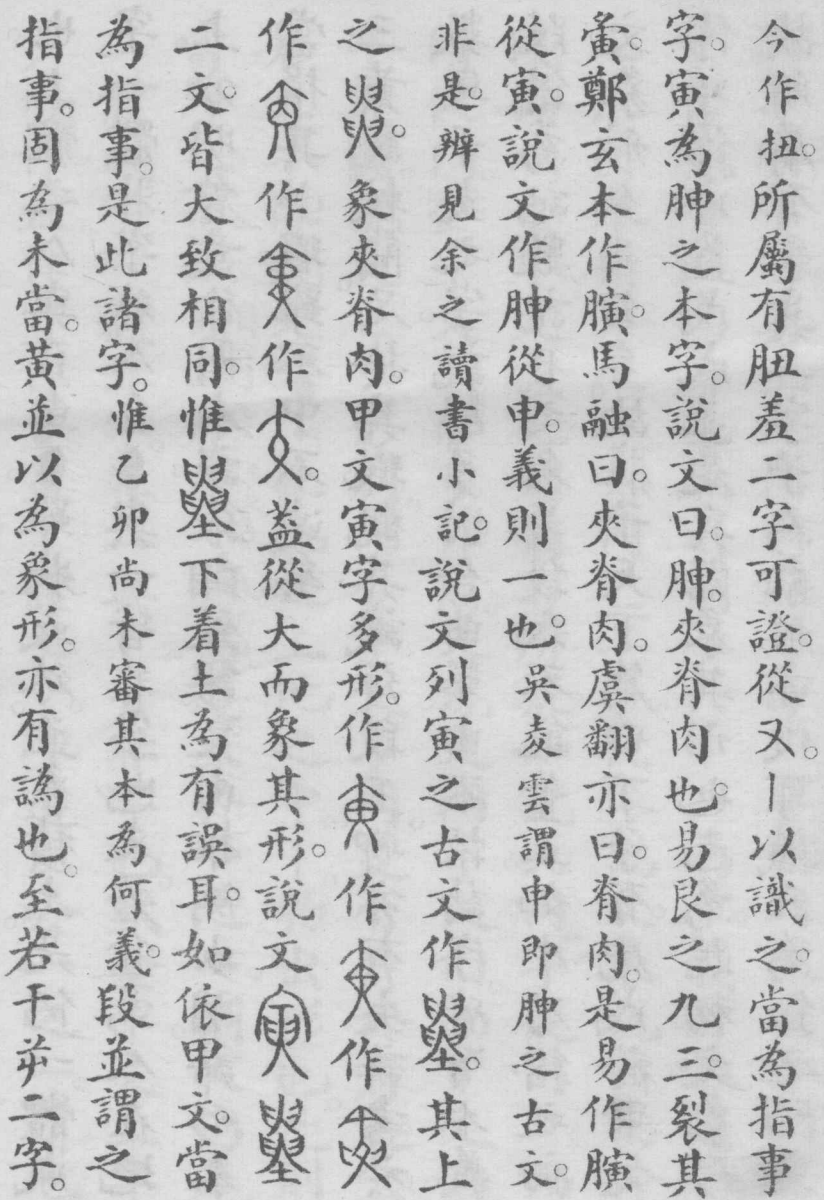 今作扭。所屬有胆羞二字可證。從又。丨以識之。當為指事
字。寅為胂之本字。說文曰。胂。夾脊肉也。易艮之九三。裂其
夤。鄭玄本作䐄。馬融曰。夾脊肉。虞翻亦曰。脊肉。是易作䐄
從寅。說文作胂從申。義則一也。吳夌雲謂申即胂之古文。
非是。辨見余之讀書小記。說文列寅之古文作。其上
之。象夾脊肉。甲文寅字多形。作作作
作作作。葢從大而象其形。說文
二文。皆大致相同。惟下着土為有誤耳。如依甲文。當
為指事。是此諸字。惟乙卯尚未審其本為何義。段並謂之
指事。固為未當。黃並以為象形。亦有譌也。至若干屰二字。